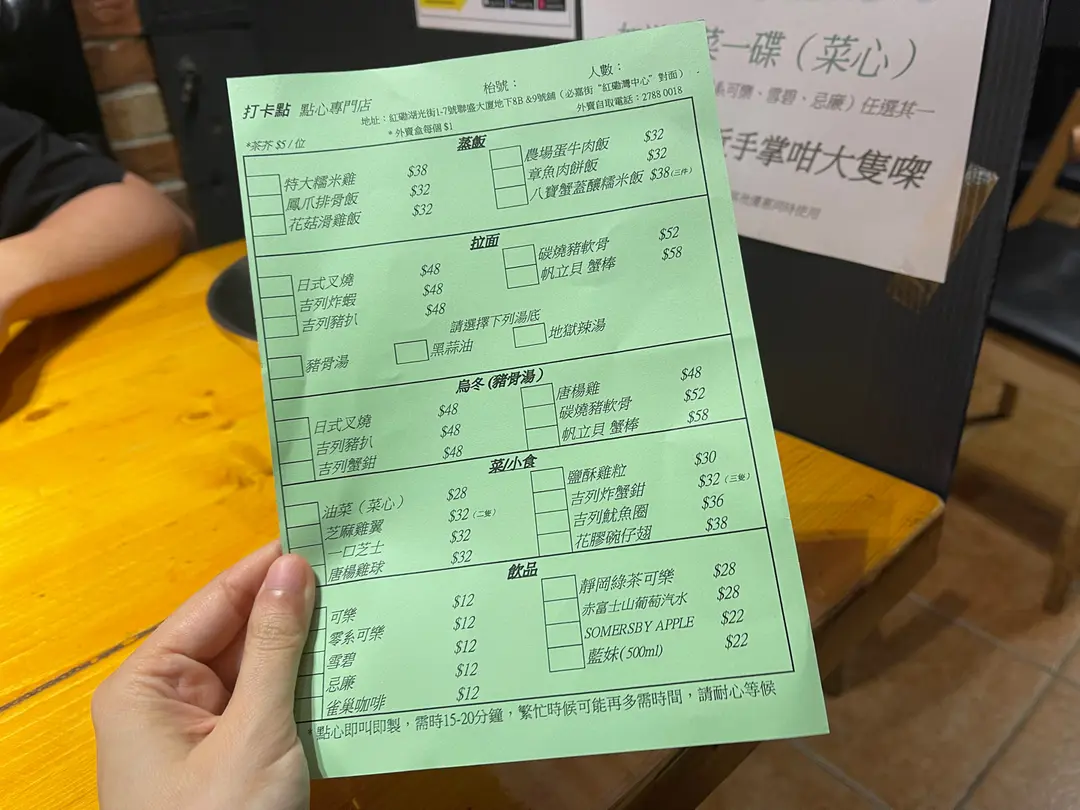 枱號：
人數：
打卡點 點心專門店
地址：紅磡湖光街1-7號聯盛大廈地下8B &9號舖（必嘉街“紅磡灣中心”對面）
*外賣盒每個 $1
外賣自取電話：2788 0018
*茶芥 $5 / 位
蒸飯
特大糯米雞 $38
鳳爪排骨飯 $32
花菇滑雞飯 $32
農場蛋牛肉飯 $32
章魚肉餅飯 $32
八寶蟹蓋釀糯米飯 $38(三件)
拉面
日式叉燒 $48
吉列炸蝦 $48
吉列豬扒 $48
碳燒豬軟骨 $52
帆立貝 蟹棒 $58
請選擇下列湯底
豬骨湯
黑蒜油
地獄辣湯
烏冬 (豬骨湯)
日式叉燒 $48
吉列豬扒 $48
吉列蟹鉗 $48
唐楊雞 $48
碳燒豬軟骨 $52
帆立貝 蟹棒 $58
菜/小食
油菜（菜心） $28
芝麻雞翼 $32 (二隻)
一口芝士 $32
唐楊雞球 $32
鹽酥雞粒 $30
吉列炸蟹鉗 $32 (三隻)
吉列魷魚圈 $36
花膠碗仔翅 $38
飲品
可樂 $12
零系可樂 $12
雪碧 $12
忌廉 $12
雀巢咖啡 $12
靜岡綠茶可樂 $28
赤富士山葡萄汽水 $28
SOMERSBY APPLE $22
藍妹(500ml) $22
*點心即叫即製，需時15-20分鐘，繁忙時候可能再多需時間，請耐心等候
菜一碟（菜心）
系可樂、雪碧、忌廉）任選其一
手掌咁大隻㗎
優惠同時使用